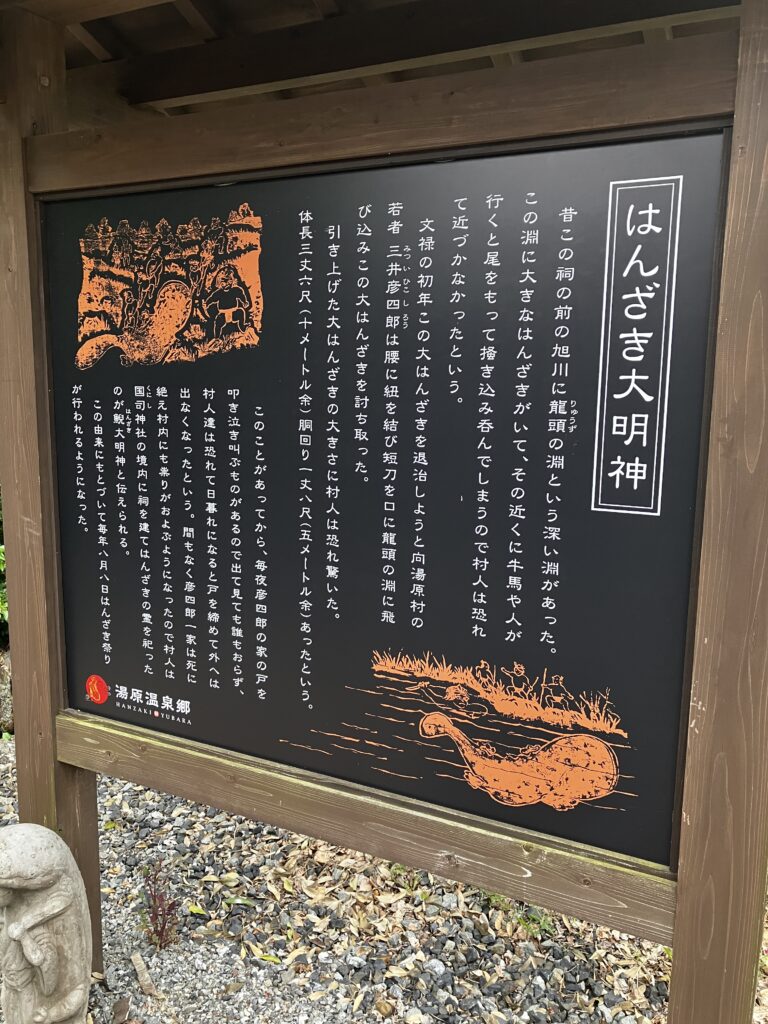 はんざき大明神
昔この祠の前の旭川に龍頭の淵という深い淵があった。
りゅうず
この淵に大きなはんざきがいて、その近くに牛馬や人が
行くと尾をもって掻き込み呑んでしまうので村人は恐れ
て近づかなかったという。
文禄の初年この大はんざきを退治しようと向湯原村の
若者 三井彦四郎は腰に紐を結び短刀を口に龍頭の淵に飛
みつ い ひこ し ろう
び込みこの大はんざきを討ち取った。
引き上げた大はんざきの大きさに村人は恐れ驚いた。
体長三丈六尺(十メートル余)胴回り一丈八尺(五メートル余)あったという。
このことがあってから、毎夜彦四郎の家の戸を
叩き泣き叫ぶものがあるので出て見ても誰もおらず、
村人達は恐れて日暮れになると戸を締めて外へは
出なくなったという。間もなく彦四郎一家は死に
絶え村内にも祟りがおよぶようになったので村人は
国司神社の境内に祠を建てはんざきの霊を祀った
くにし
のが鯢大明神と伝えられる。
はんざき
この由来にもとづいて毎年八月八日はんざき祭り
が行われるようになった。
湯原温泉郷
HANZAKI YUBARA